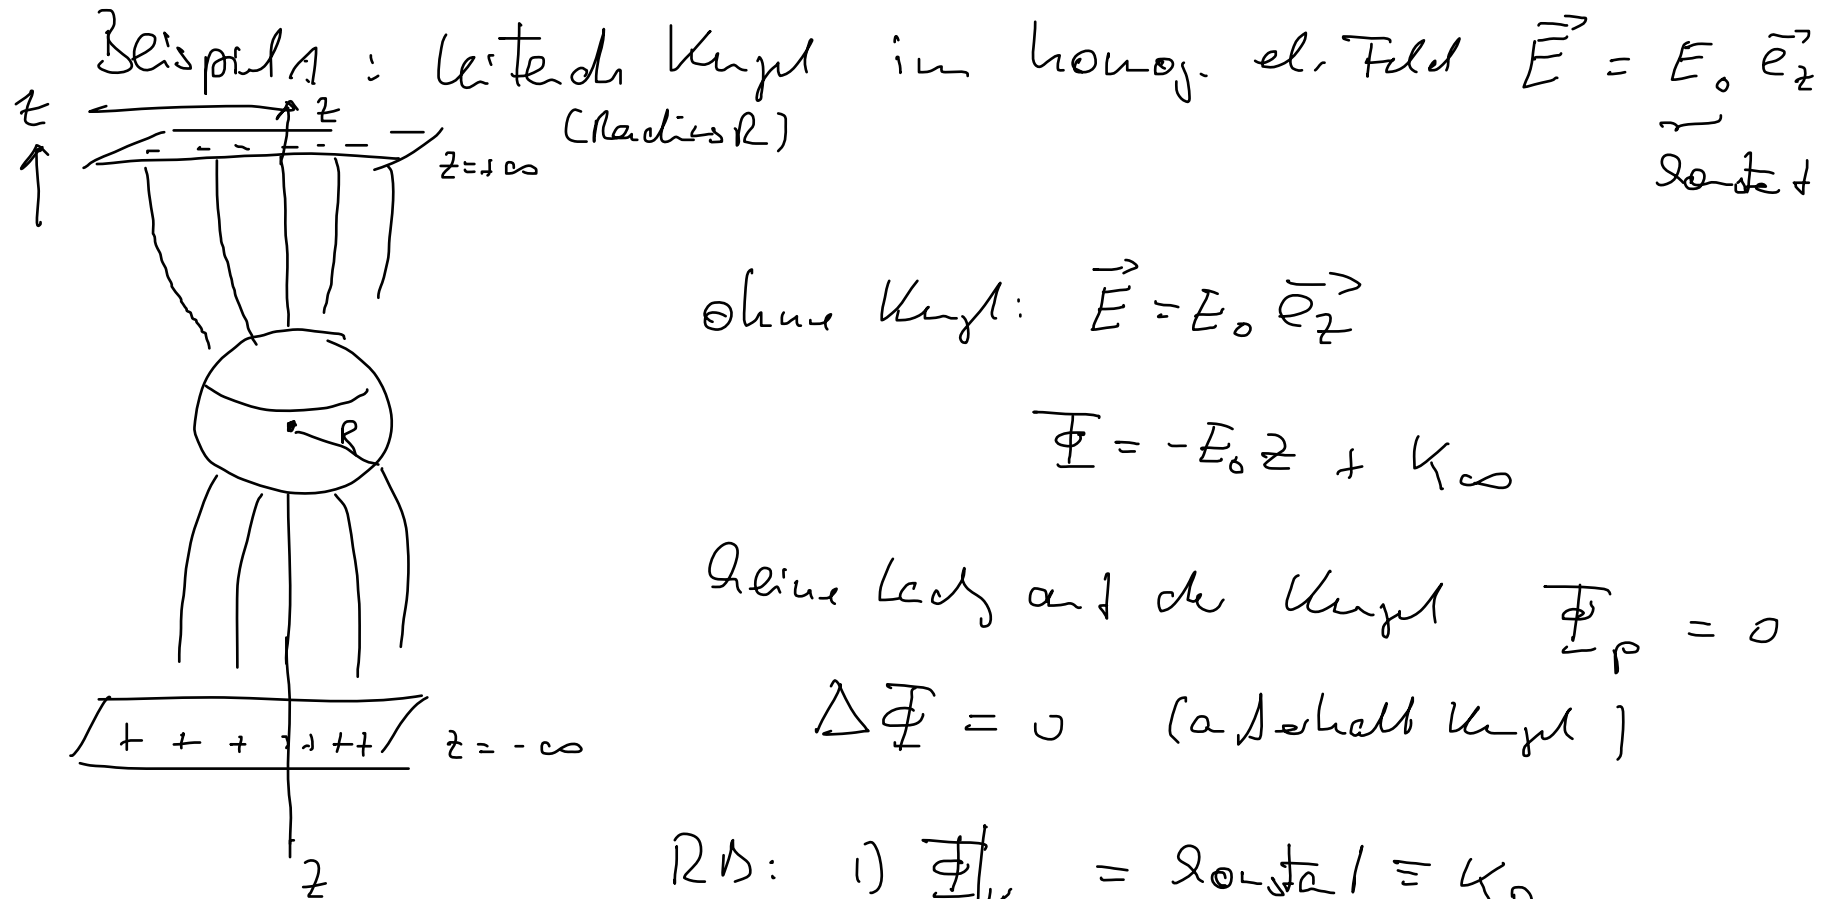 Beispiel 1 : leitende Kugel im homog. el. Feld \vec{E} = E_0 \vec{e_z}
(Radius R)
konstant
z
z
z = +∞
ohne Kugel: \vec{E} = E_0 \vec{e_z}
Φ = -E_0 z + K_∞
R
keine Ladg auf der Kugel Φ_p = 0
ΔΦ = 0 (außerhalb Kugel)
+ + + + + + +
z = -∞
RB: 1) Φ| = konstant ≡ K_0
z